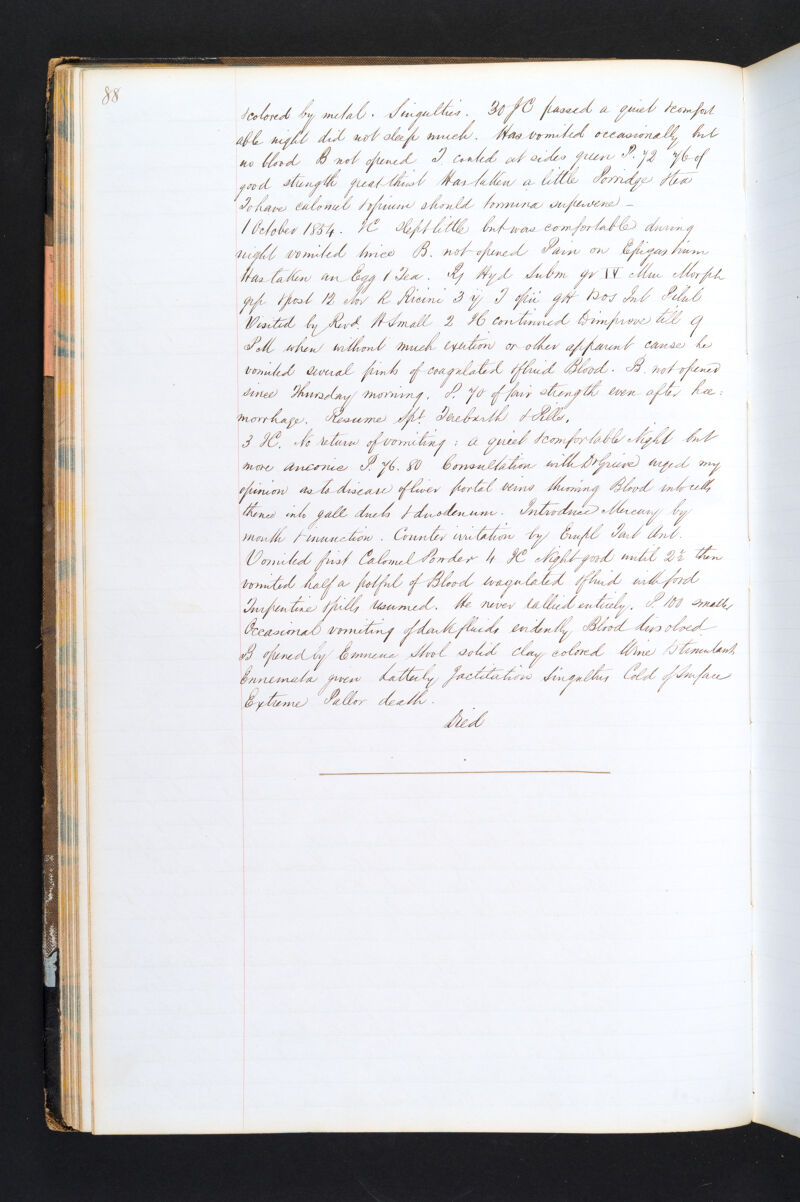 88
& colored by metal. Singulties. 30 JC passed a quiet & comfort
able night did not sleep much. Has vomited occasionally but
no blood B not opened T. coated at sides green P. 72 76 of
good strength great thirst Has taken a little Porridge & tea
To have calomel & opium should tormina supervene –
1 October 1834. JC Slept little but was comfortable during
night vomited twice B. not opened Pain on Epigastrium
Has taken an Egg & Tea. Rx Hyd Subm gr IV Mur Morph
& post 12 hor R Ricini 3 ij T opii gtt
Visited by Revd. H Small 2 JC continued to improve till 9
P.M when without much exertion or other apparent cause he
vomited several pints of coagulated & fluid Blood. B. not opened
since Thursday morning. P. 70 of fair strength even after hæ:
morrhage. Resume Spt Terebinth & Pills.
3 JC. No return of vomiting: a quiet & comfortable Night but
more anconic P. 76. 80 Consultation with Dr Grieve urged my
opinion as to disease of liver portal veins throwing Blood into cells
thence into gall ducts & duodenum. Introduce Mercury by
mouth & inunction. Counter irritation by Empl Tart Ant.
Vomited first Calomel Powder 4 JC Night good until 2½ then
vomited half a potful of Blood coagulated & fluid
Turpentine & pills resumed. He never rallied entirely. P. 100 small
Occasional vomiting of dark fluids evidently Blood dissolved
B opened by Ennema stool solid clay colored Wine & Stimulants
Ennemata given Latterly Jactitation Singultus Cold of Surface
Extreme Pallor death.
Died